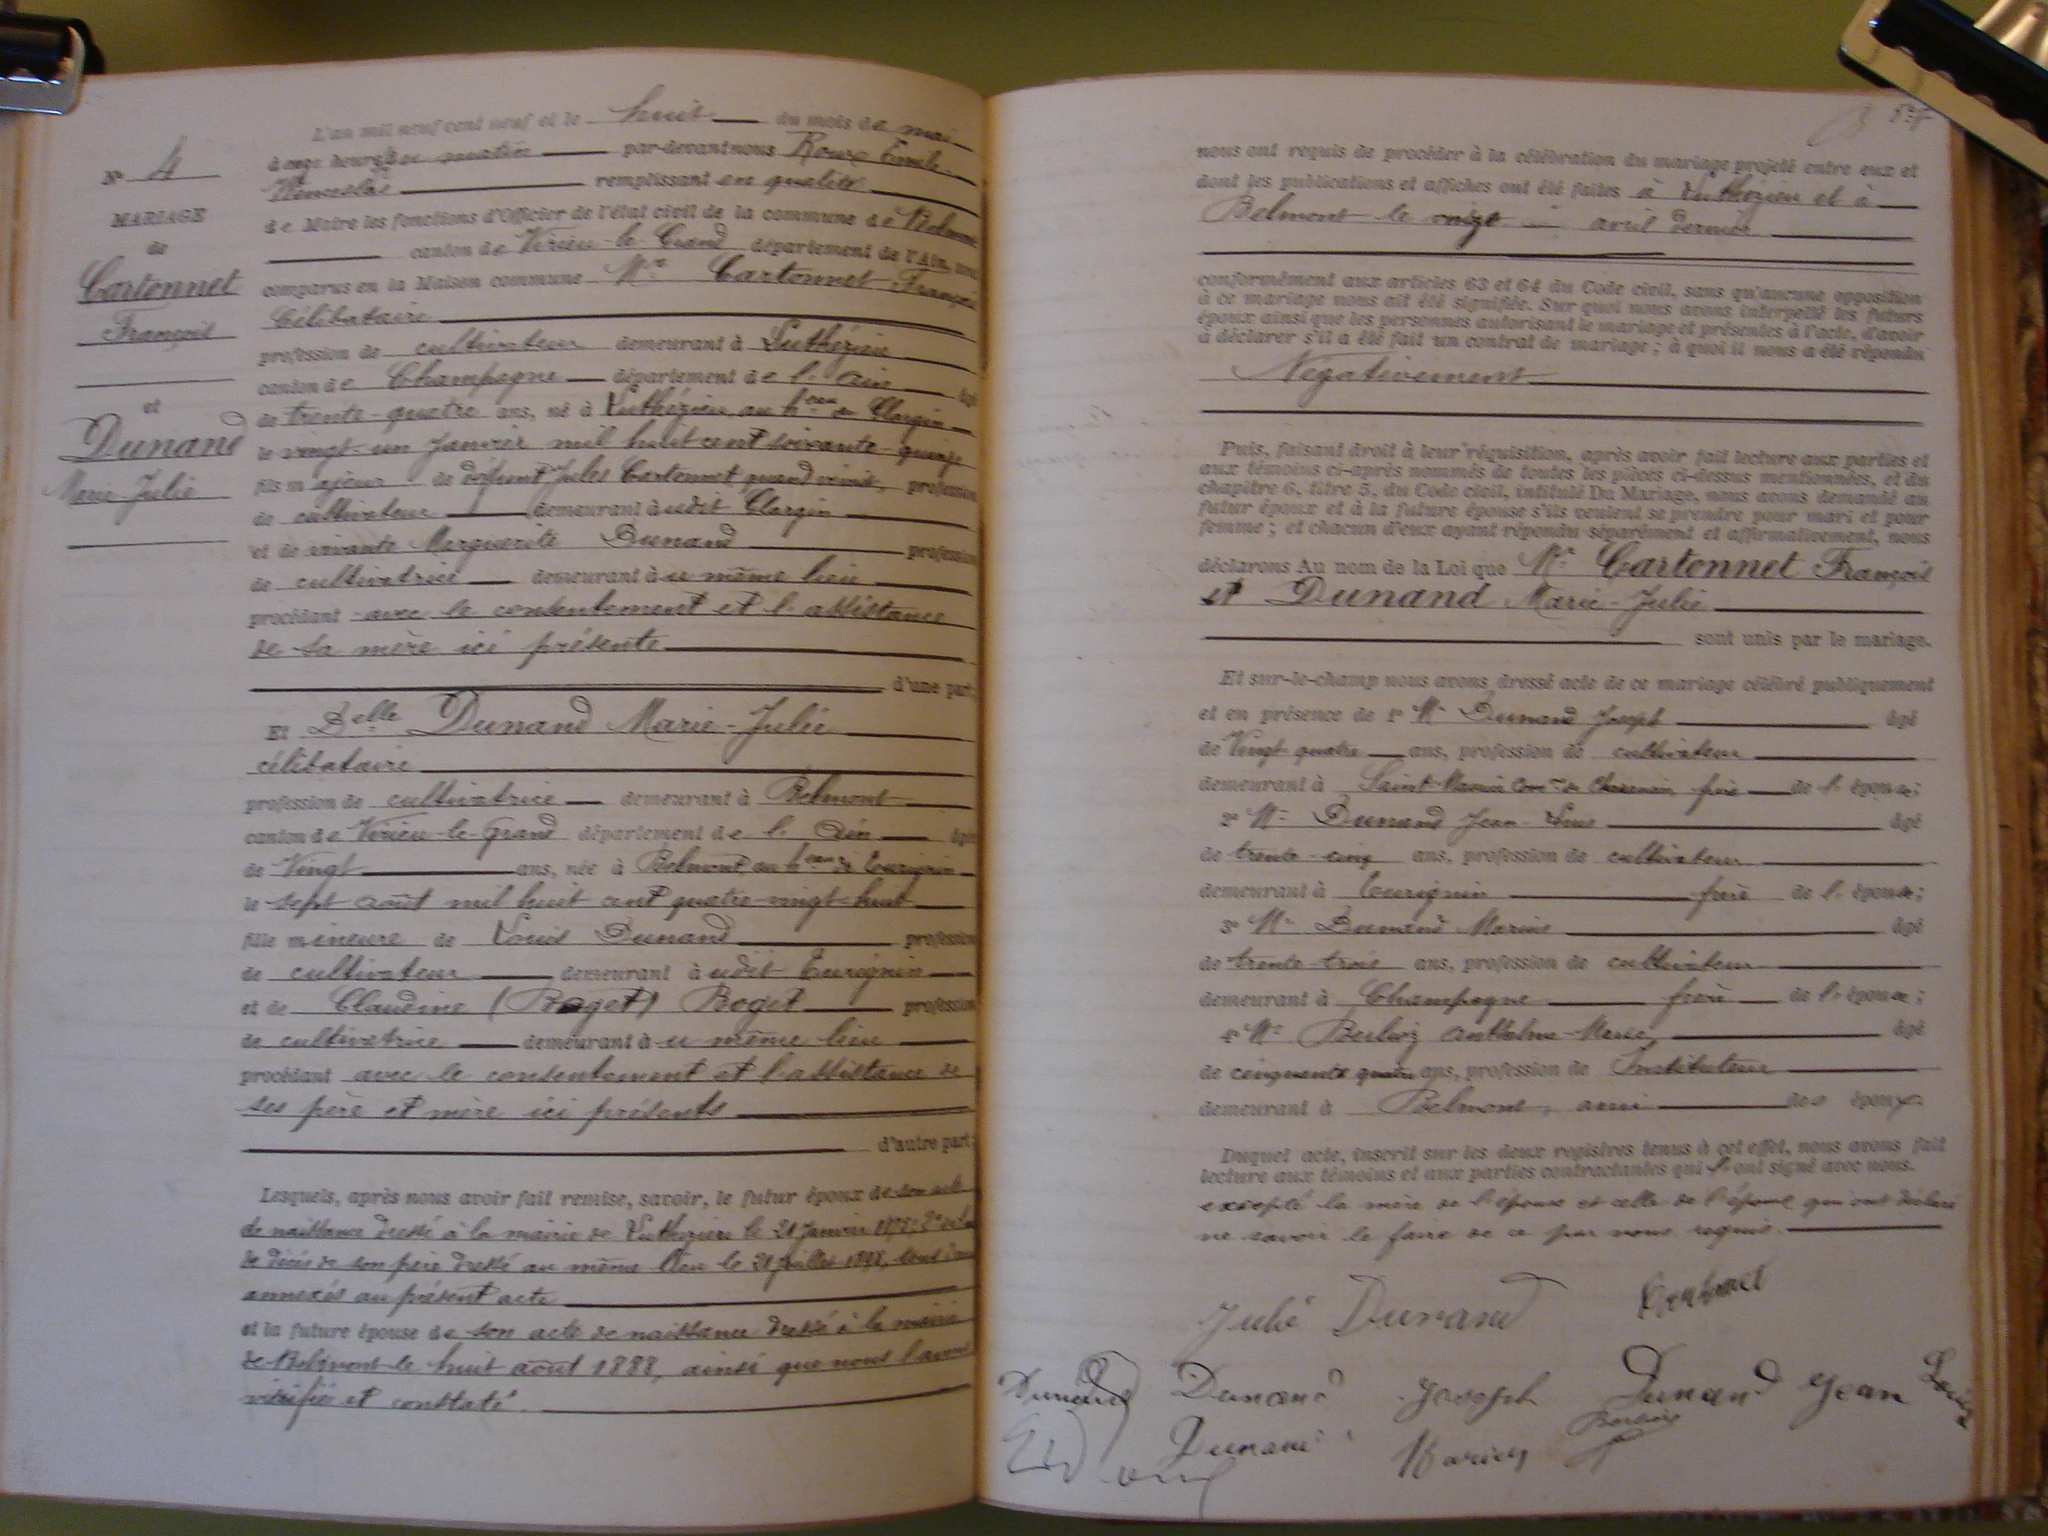 L'an mil neuf cent neuf et le huit du mois de mai
à onze heures du matin par-devant nous Roux Emile
Wenceslas remplissant en qualité
de Maire les fonctions d'Officier de l'état civil de la commune de Belmont
canton de Virieu-le-Grand département de l'Ain, sont
comparus en la Maison commune Mr Cartonnet François
Célibataire
profession de cultivateur demeurant à Luthézieu
canton de Champagne département de l'Ain âgé
de trente-quatre ans, né à Luthézieu, au heau de Chargin
le vingt-un janvier mil huit cent soixante-quinze
fils majeur de défunt Jules Cartonnet, quand vivait, profession
de cultivateur demeurant audit Chargin
et de vivante Marguerite Dunand profession
de cultivatrice demeurant au même lieu
procédant avec le consentement et l'assistance
de sa mère ici présente
d'une part;
Et Delle Dunand Marie-Julie
célibataire
profession de cultivatrice demeurant à Belmont
canton de Virieu-le-Grand département de l'Ain âgée
de Vingt ans, née à Belmont, au heau de
le sept août mil huit cent quatre-vingt-huit
fille mineure de Louis Dunand profession
de cultivateur demeurant audit
et de Claudine (Roget) Boget profession
de cultivatrice demeurant au même lieu
procédant avec le consentement et l'assistance de
ses père et mère ici présents
d'autre part;
Lesquels, après nous avoir fait remise, savoir, le futur époux de son acte
de naissance dressé à la mairie de Luthézieu le 21 Janvier 1875; 2°
de décès de son père dressé au même lieu le 21 juillet
annexés au présent acte
et la future épouse de son acte de naissance dressé à la mairie
de Belmont le huit août 1888, ainsi que nous l'avons
vérifié et constaté.
N° 4
MARIAGE
de
Cartonnet
François
et
Dunand
Marie-Julie
nous ont requis de procéder à la célébration du mariage projeté entre eux et
dont les publications et affiches ont été faites à Luthézieu et à
Belmont le vingt avril dernier
conformément aux articles 63 et 64 du Code civil, sans qu'aucune opposition
à ce mariage nous ait été signifiée. Sur quoi nous avons interpellé les futurs
époux ainsi que les personnes autorisant le mariage et présentes à l'acte, d'avoir
à déclarer s'il a été fait un contrat de mariage; à quoi il nous a été répondu
Négativement
Puis, faisant droit à leur réquisition, après avoir fait lecture aux parties et
aux témoins ci-après nommés de toutes les pièces ci-dessus mentionnées, et du
chapitre 6, titre 5, du Code civil, intitulé Du Mariage, nous avons demandé au
futur époux et à la future épouse s'ils veulent se prendre pour mari et pour
femme; et chacun d'eux ayant répondu séparément et affirmativement, nous
déclarons Au nom de la Loi que Mr Cartonnet François
et Dunand Marie-Julie
sont unis par le mariage.
Et sur-le-champ nous avons dressé acte de ce mariage célébré publiquement
et en présence de 1° Mr Dunand Joseph âgé
de Vingt quatre ans, profession de cultivateur
demeurant à Saint-Maurice frère de l'épouse;
2° Mr Dunand Jean-Louis âgé
de trente-cinq ans, profession de cultivateur
demeurant à frère de l'épouse;
3° Mr Dunand Marius âgé
de trente-trois ans, profession de cultivateur
demeurant à Champagne frère de l'épouse;
4° Mr Berlioz Anthelme-Marie âgé
de cinquante quatre ans, profession de Instituteur
demeurant à Belmont, ami des époux
Duquel acte, inscrit sur les deux registres tenus à cet effet, nous avons fait
lecture aux témoins et aux parties contractantes qui l'ont signé avec nous.
excepté la mère de l'époux et celle de l'épouse qui ont déclaré
ne savoir le faire de ce par nous requis.
Julie Dunand Cartonnet
Dunand Dunand Joseph Dunand Jean Louis
Dunand Marius Berlioz